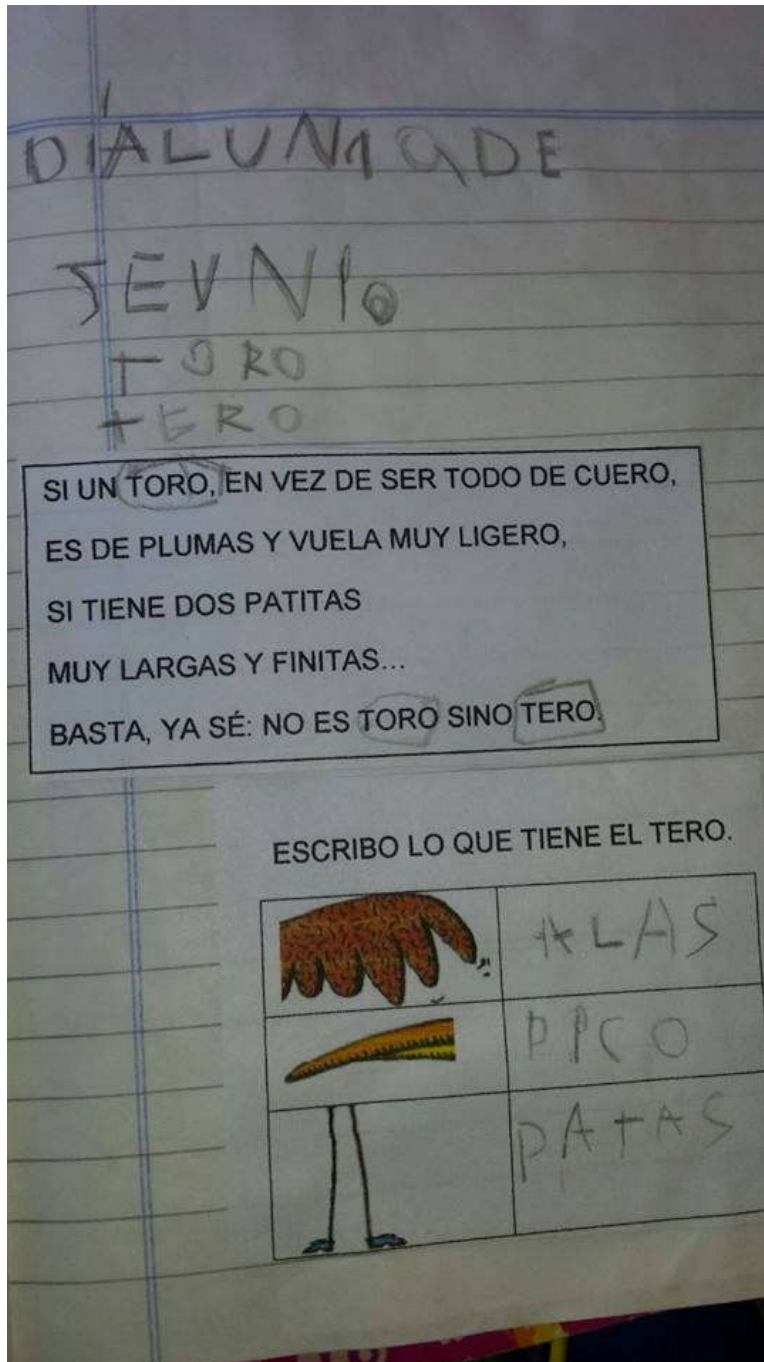 DÍALUN1 9 DE
JEUNIO
TORO
TERO
SI UN TORO, EN VEZ DE SER TODO DE CUERO,
ES DE PLUMAS Y VUELA MUY LIGERO,
SI TIENE DOS PATITAS
MUY LARGAS Y FINITAS...
BASTA, YA SÉ: NO ES TORO SINO TERO.
ESCRIBO LO QUE TIENE EL TERO.
ALAS
PICO
PATAS